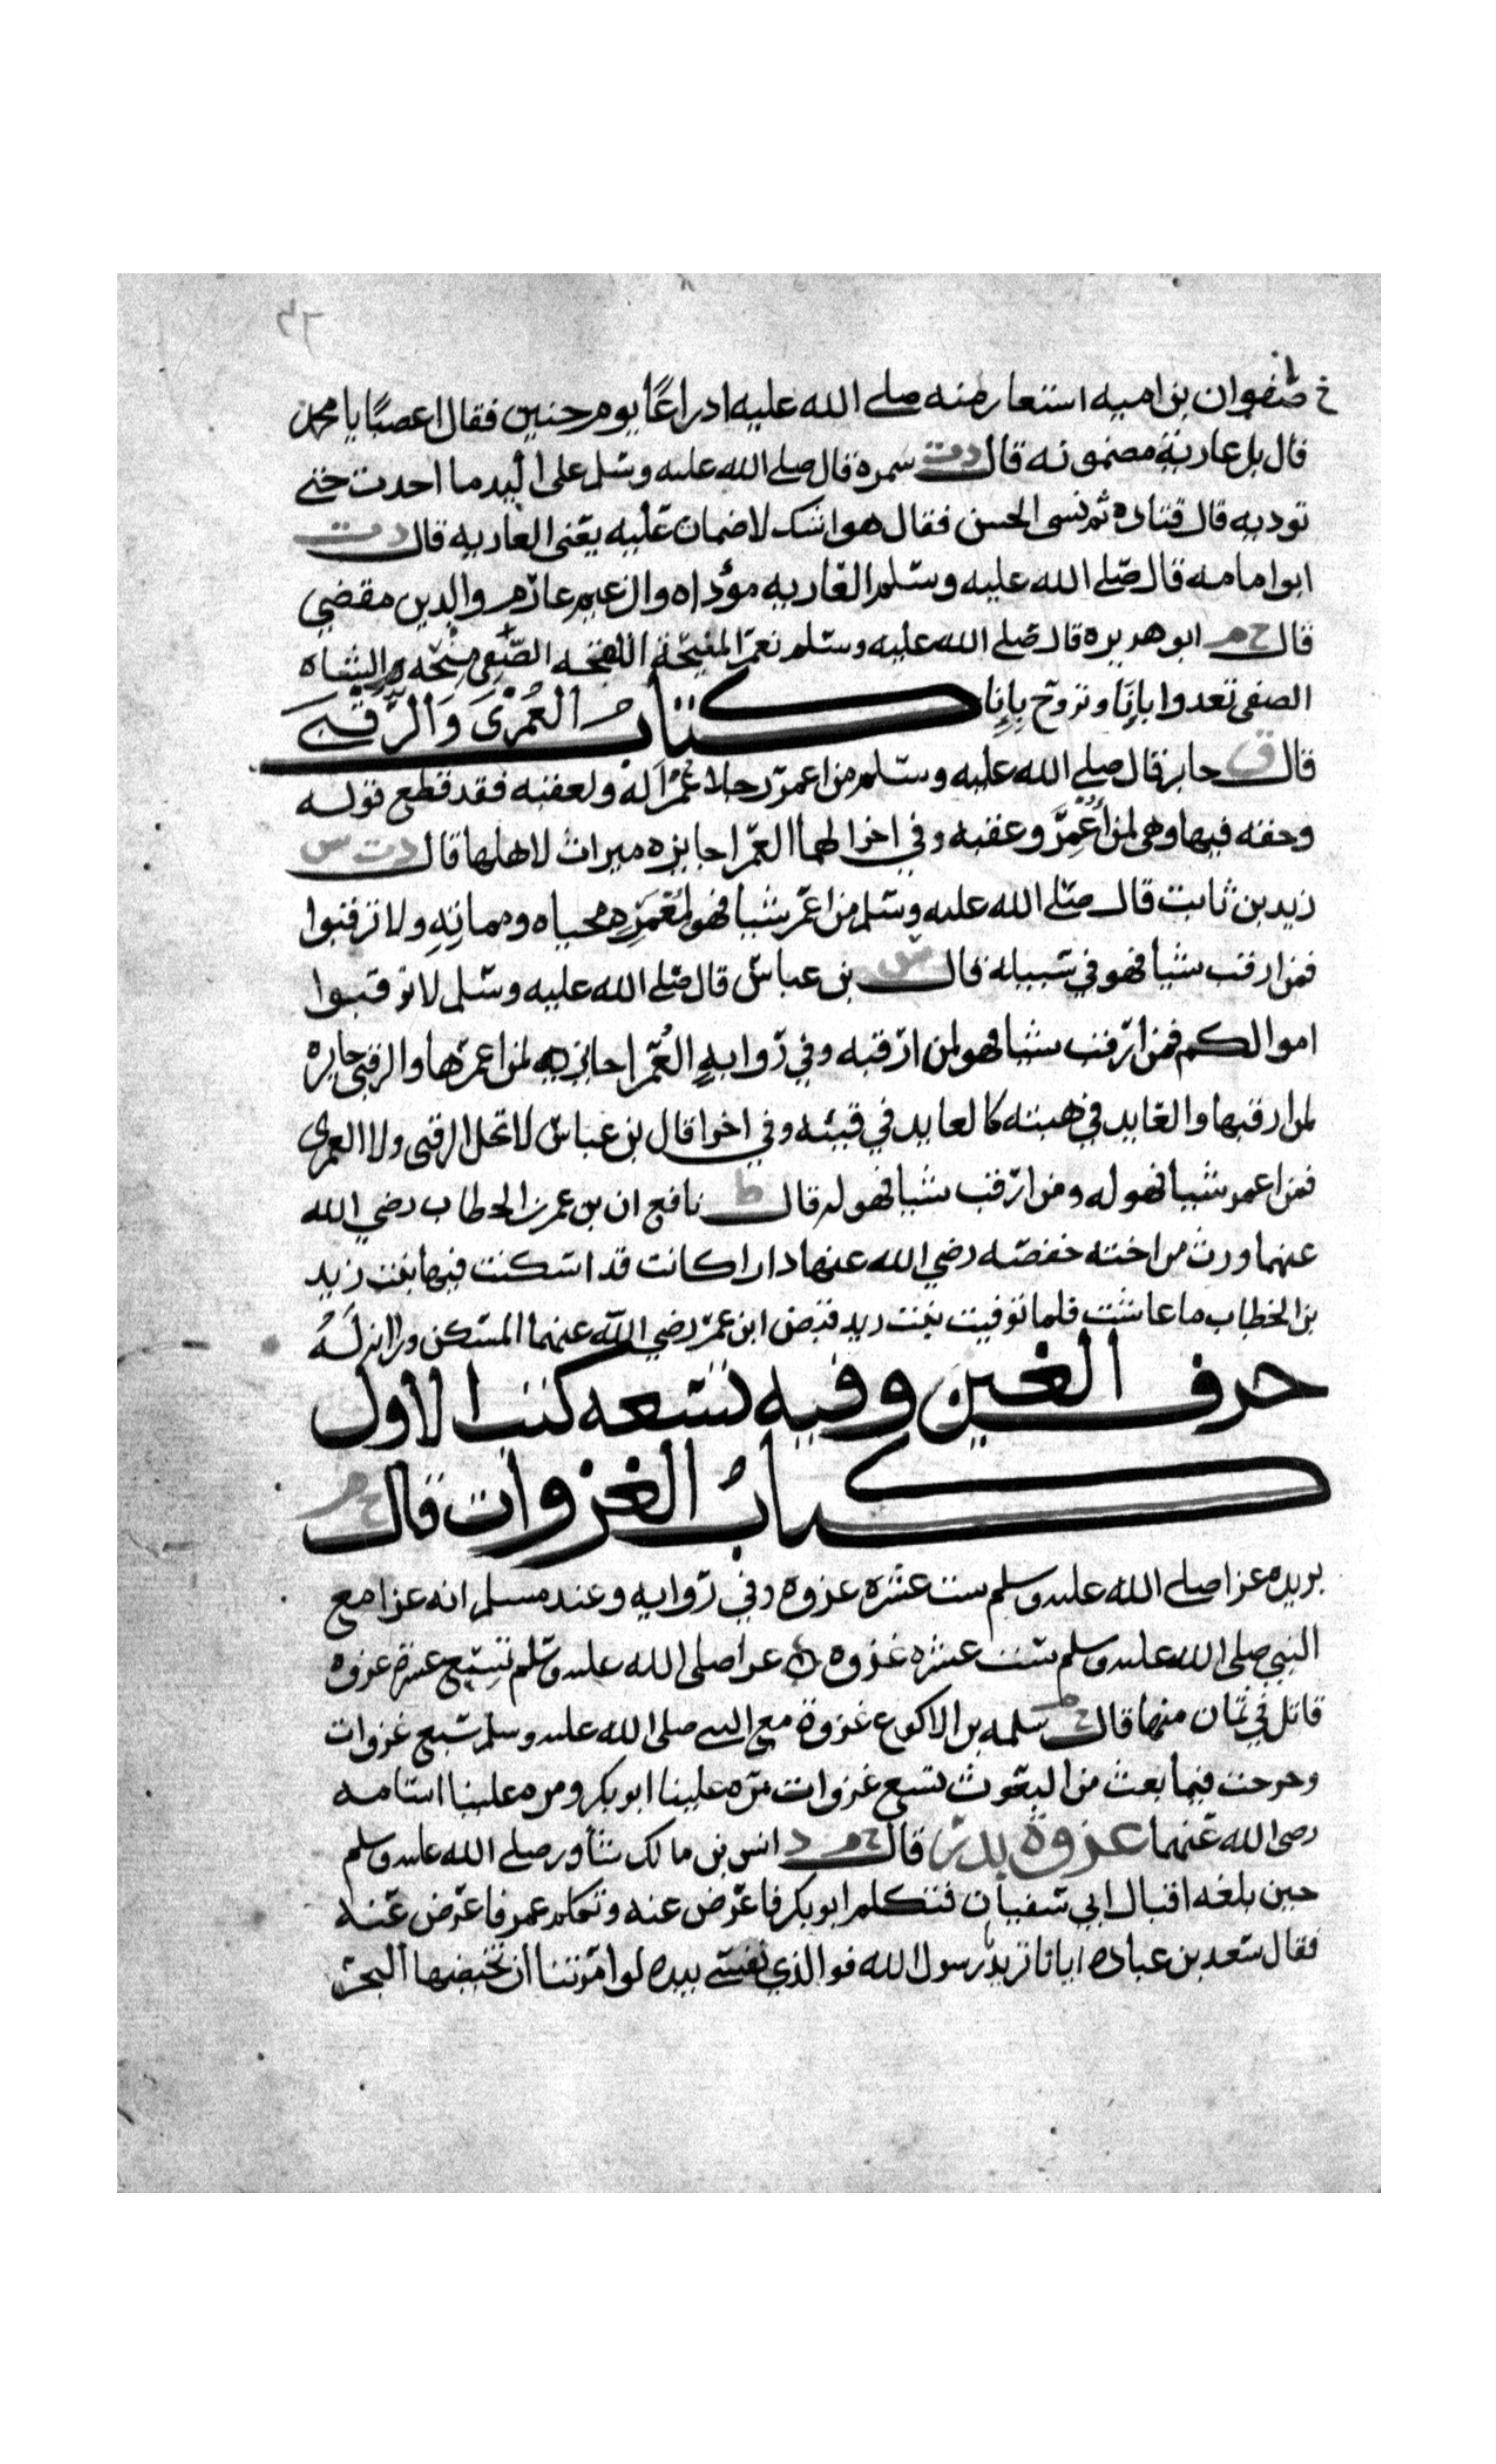 صفوان بن اميه استعار منه صلى الله عليه ادراعًا يوم حنين فقال اغصبًا يا محمد
قال بل عارية مضمونه قال د ت سمره قال صلى الله عليه وسلم على اليد ما اخدت حتى
توديه قال قتاده ثم نسى الحسن فقال هو امينك لا ضمان عليه يعنى العاريه قال د ت
ابو امامه قال صلى الله عليه وسلم العاريه مؤداه والزعيم غارم والدين مقضي
قال خ م ابو هريره قال صلى الله عليه وسلم نعم المنيحة اللقحه الصفي منحه والشاه
الصفى تغدوا باِناَ وتروح باِناِ كتابُ العُمْرَى وَالرُّقبَى
قال ق جابر قال صلى الله عليه وسلم من اعمر رجلا عُمْرًا له ولعقبه فقد قطع قوله
وحقه فيها وهى لمن اُعْمِرَ وعقبه وفي اخرا لهما العمرا جايزه ميراث لاهلها قال د ت س
زيد بن ثابت قال صلى الله عليه وسلم من اعمر شيا فهو لمُعْمَرِه محياه ومماتِهِ ولا ترقبوا
فمن ارقب شيا فهو في سبيله قال س بن عباس قال صلى الله عليه وسلم لا ترقبوا
اموالكم فمن ارقب شيا فهو لمن ارقبه وفي روايه العُمرا جايزه لمن اعمرها والرقبى جايزه
لمن ارقبها والعايد في هبته كالعايد في قيئه وفي اخرا قال بن عباس لا تحل الرقبى ولا العمرى
فمن اعمر شيا فهو له ومن ارقب شيا فهو له قال ط نافع ان بن عمر بن الخطاب رضي الله
عنهما ورث من اخته حفصه رضي الله عنها دارا كانت قد اسكنت فيها بنت زيد
بن الخطاب ما عاشت فلما توفيت بنت زيد قبض ابن عمر رضي الله عنهما المسكن وراانه لَهُ
حرف الغين وفيه تسعه كتب الاول
كتابُ الغزوات قال خ م
بريده غزا صلى الله عليه وسلم ست عشره غزوه وفي روايه وعند مسلم انه غزا مع
النبي صلى الله عليه وسلم ست عشره غزوه غزا صلى الله عليه وسلم تسع عشرة غزوه
قاتل في ثمان منها قال خ م سلمه بن الاكوع غزوة مع النبي صلى الله عليه وسلم سبع غزوات
وخرجت فيما بعث من البعوث تسع غزوات مره علينا ابو بكر ومره علينا اسامه
رضى الله عنهما غزوة بدر قال خ م د انس بن مالك شاور صلى الله عليه وسلم
حين بلغه اقبال ابي سفيان فتكلم ابو بكر فاعرض عنه وتكلم عمر فاعرض عنه
فقال سعد بن عباده ايانا تريد يا رسول الله فوالذي نفسى بيده لو امرتنا ان نخيضها البحر